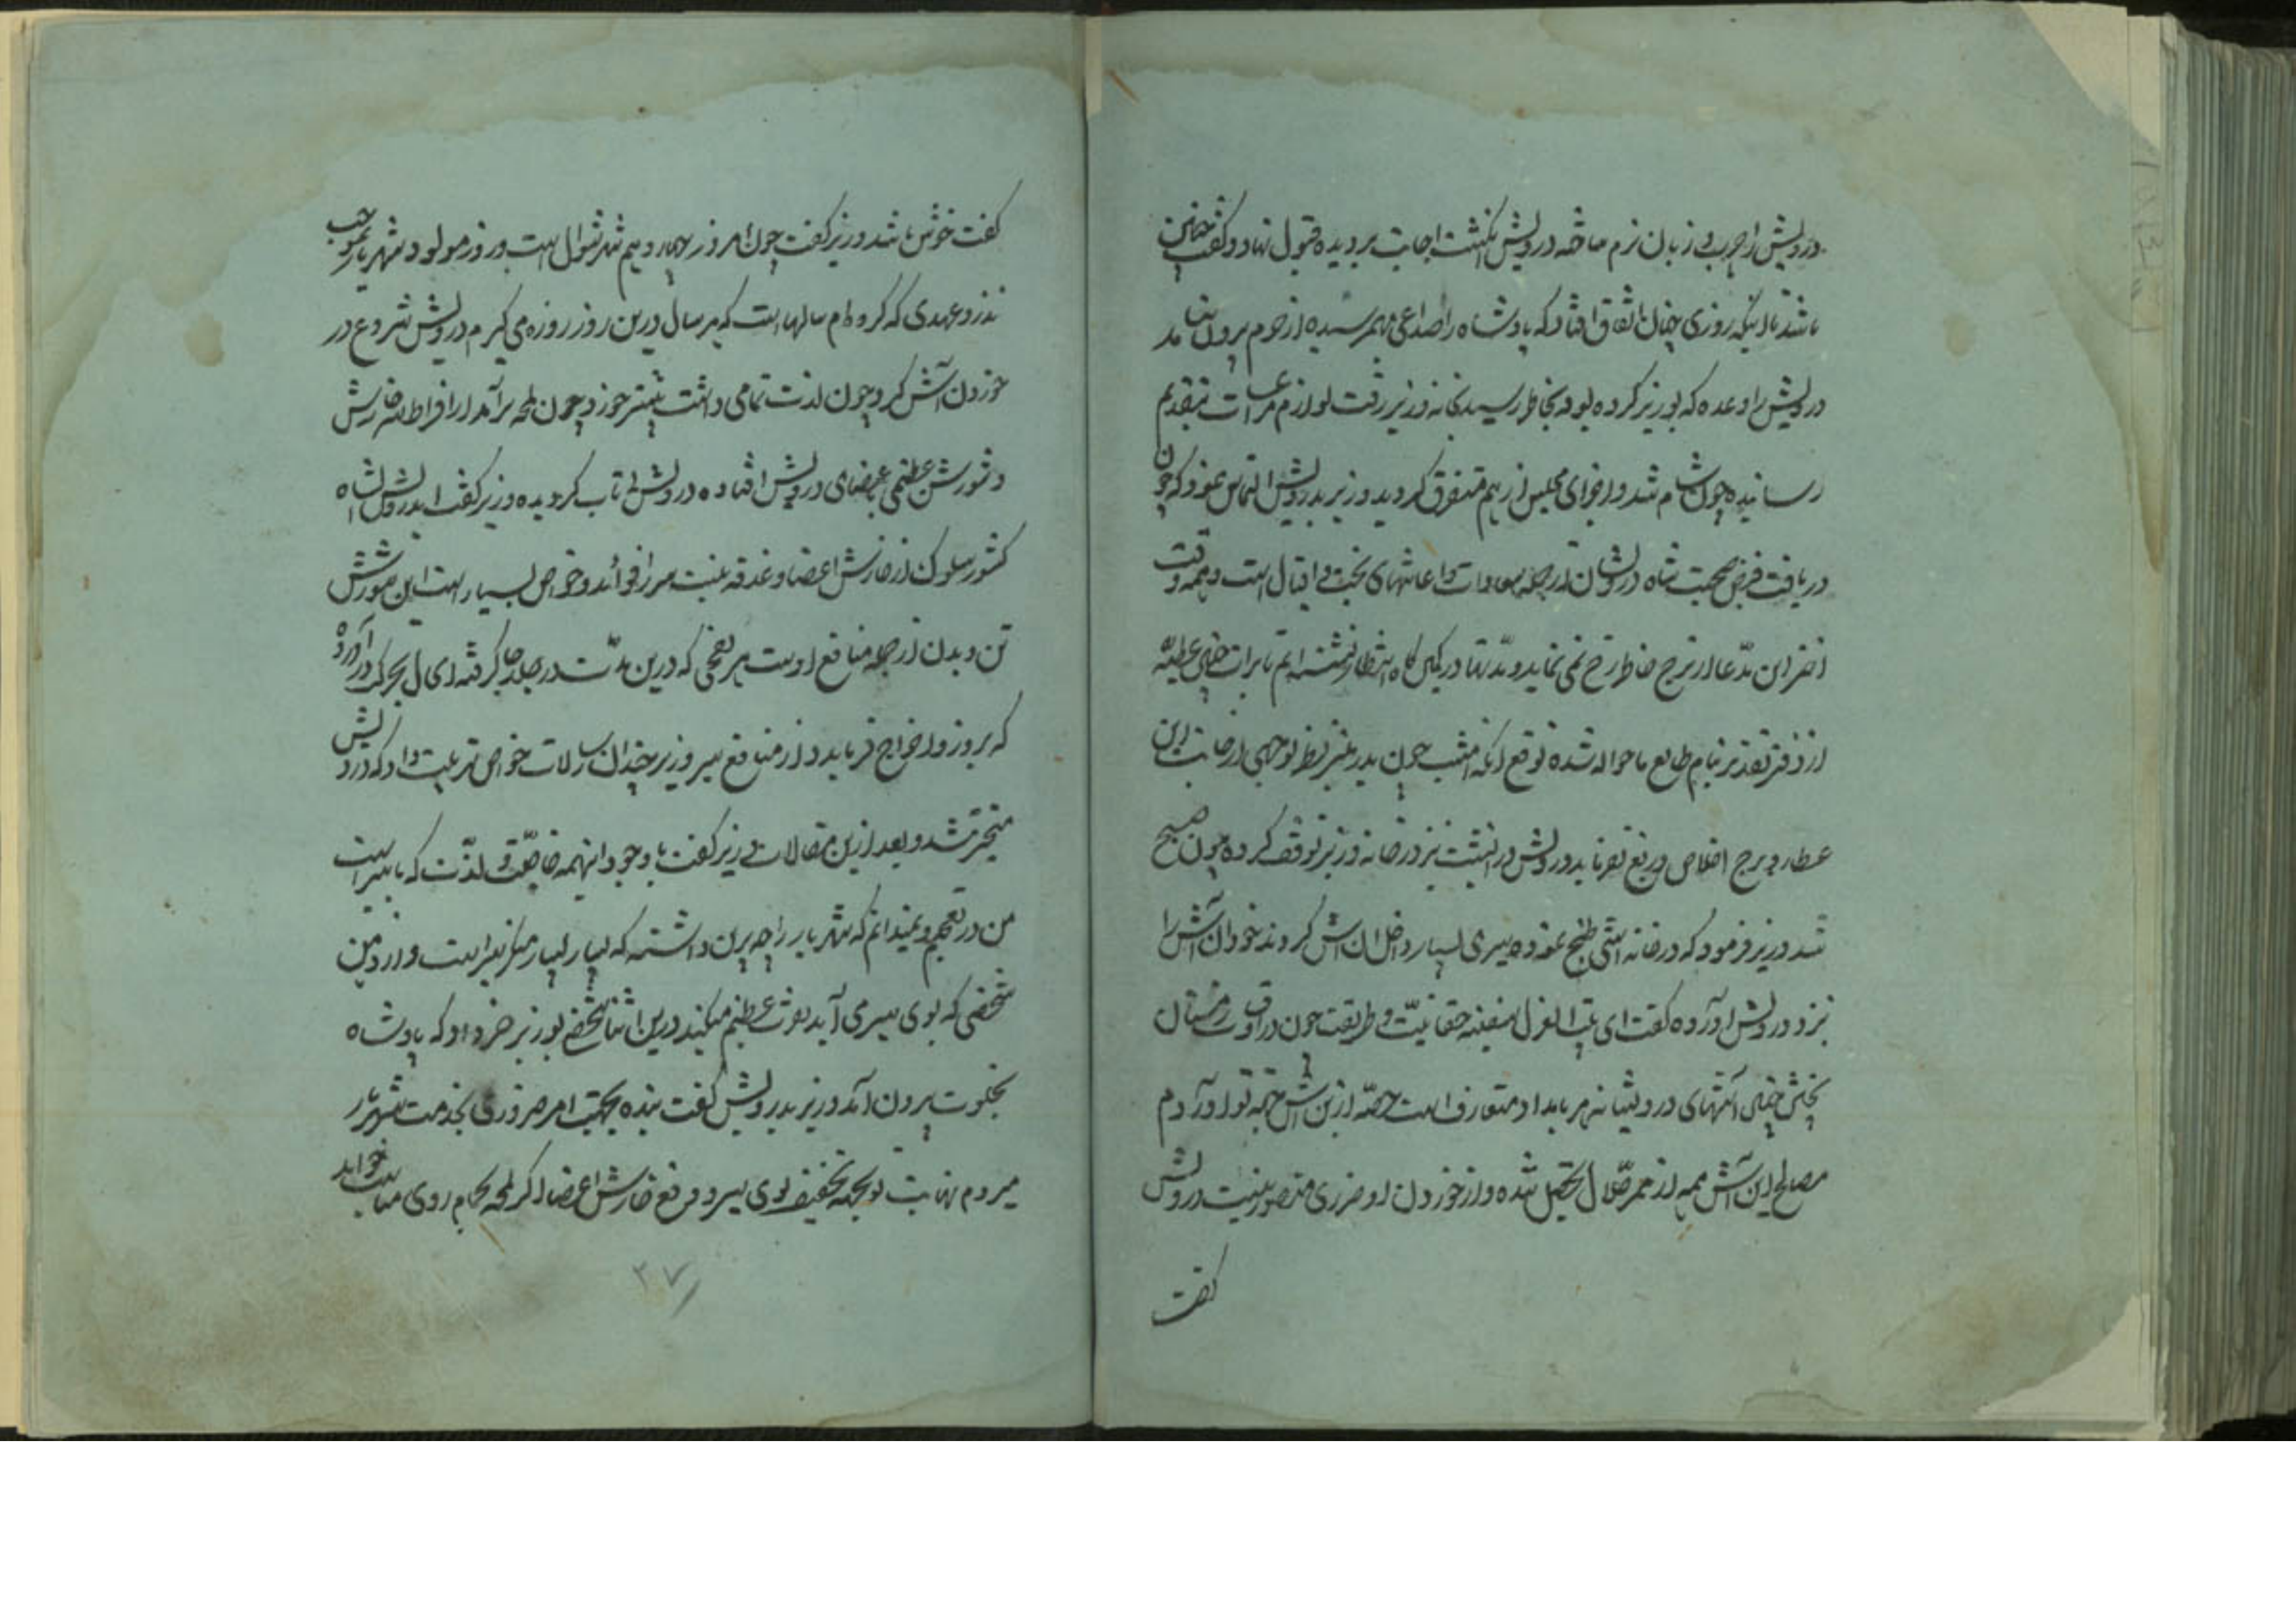 درویش را چرب و زبان نرم ساخته درویش انگشت اجابت بر دیده قبول نهاد و گفت چنین
باشد تا اینکه روزی چنان اتفاق افتاد که پادشاه را صداعی بهم رسیده از حرم برون نیامد
درویش را وعده که بوزیر کرده بود بخاطر رسید بخانه وزیر رفت لوازم مراعات بتقدیم
رسانیده چون شام شد و اجزای مجلس از هم متفرق گردید وزیر بدرویش التماس نمود که چون
دریافت فیض صحبت شاه درویشان از جمله سعادات و اعانتهای بخت و اقبال است و همه وقت
اختر این مدعا از برج خاطر رخ نمی نماید و مدتها در کمین گاه انتظار نشسته ایم تا برات چنین عطیه
از دفتر تقدیر بنام طالع ما حواله شده توقع آنکه امشب چون بدر منیر نظر توجهی از جانب این
عطارد برج اخلاص دریغ نفرمایید درویش در آنشب نیز در خانه وزیر توقف کرده چون صبح
شد وزیر فرمود که در خانه آشی طبخ نموده سیری بسیار داخل آن آش کردند خود آن آش را
نزد درویش آورده گفت ای سفینه حقانیت و طریقت چون در اوقات زمستان
پختن چنین آشهای درویشانه هر بامداد متعارف است حصه ازین آش جهة تو آوردم
مصالح این آش همه از ممر حلال تحصیل شده و از خوردن او ضرری متصور نیست درویش
گفت
گفت خوش باشد وزیر گفت چون امروز چهاردهم شهر شوال است و روز مولود شهریار بموجب
نذر و عهدی که کرده ام سالهاست که هر سال درین روز روزه می گیرم درویش شروع در
خوردن آش کرد چون لذت تمامی داشت بیشتر خورد چون لمحه برآمد از افراط خارش
و شورش عظیمی باعضای درویش افتاده درویش بی تاب گردیده وزیر گفت ای درویش شاه
کشور سلوک از خارش اعضا و غدغه نیست سیر را فوائد و خواص بسیار است این شورش
تن و بدن از جمله منافع اوست هر نفخی که درین مدت در جلد جا گرفته ای ال بحرکت در آورد
که بروز و اخراج فرماید و از منافع سیر وزیر چندان رسالات خواص ترتیب داد که درویش
متحیر شد و بعد ازین مقالات وزیر گفت با وجود اینهمه خاصیت و لذت که با سیر است
من در تعجبم و نمیدانم که شهریار را چه برین داشته که بسیار بسیار منکر سیر است و از دهن
شخصی که بوی سیر می آید نفرت عظیم میکند درین اثنا شخصی بوزیر خبر داد که پادشاه
بخلوت برون آمد وزیر بدرویش گفت بنده بجهت امر ضروری بخدمت شهریار
میروم نهایت تو بجهة تخفیف بوی سیر و دفع خارش اعضا اگر لمحه بحمام روی مناسب خواهد
۲۷